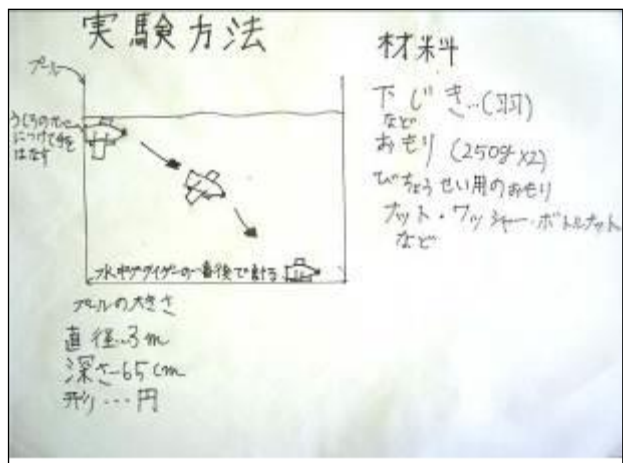 実験方法
プール
うしろのかべ
につけて手を
はなす
水中グライダーの一番後で計る
プールの大きさ
直径…3m
深さ…65cm
形…円
材料
下じき…(羽)
など
おもり (250g×2)
びちょうせい用のおもり
ナット・ワッシャー・ボトルナット
など